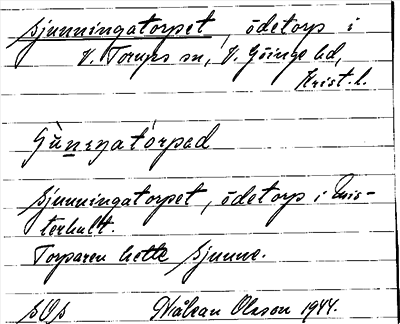 Sjunningatorpet, ödetorp i
V. Torups sn, V. Göinge hd,
Krist. l.
Sjunningatorpet, ödetorp i
terhult.
Torparen hette Sjunne.
SOS Håkan Olsson 1944.